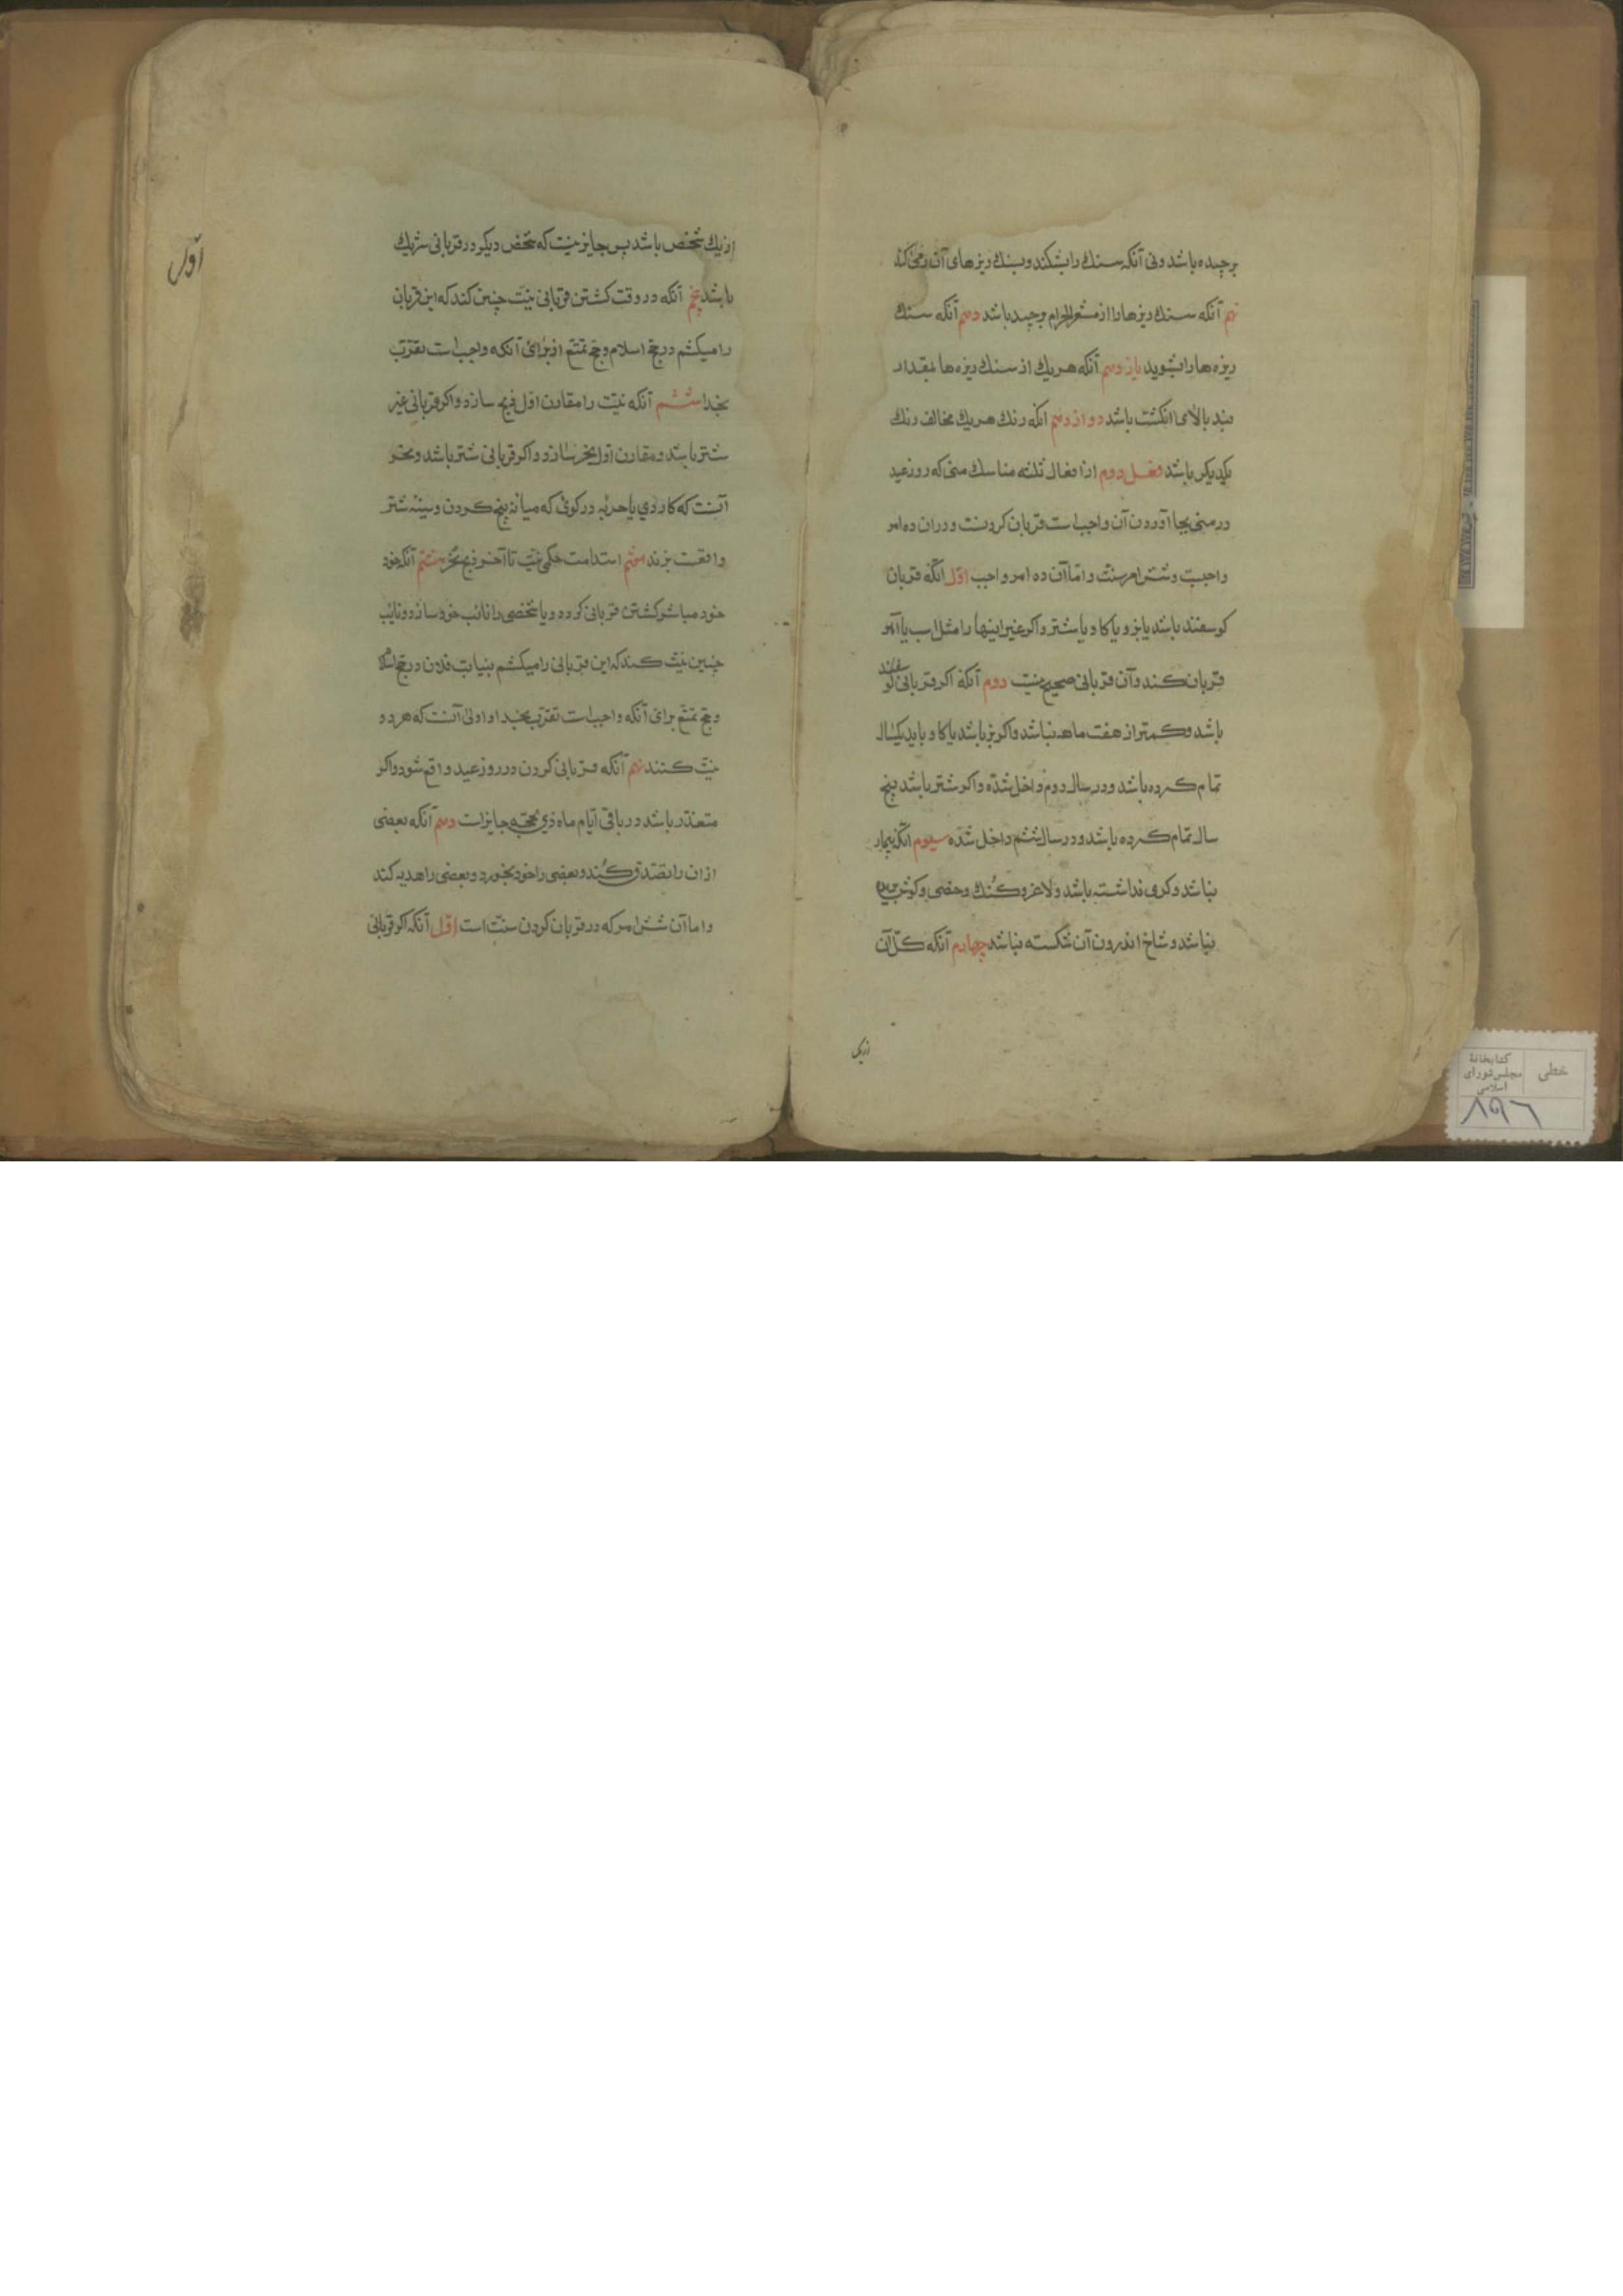 برچیده باشد ونی آنکه سنك را بشکند و بسنك ریزهای آن رمی کند
نهم آنکه سنك ریزها را از مشعر الحرام برچیده باشد دهم آنکه سنك
ریزه ها را بشوید یازدهم آنکه هریك از سنك ریزه ها بمقدار
بند بالای انکشت باشد دوازدهم آنکه رنك هریك مخالف رنك
یکدیکر باشد فصل دوم از افعال ثلثه مناسك منی که روز عید
در منی بجا آوردن آن واجب است قربان کردنست و دران ده امر
واجبست و شش امر سنت و اما آن ده امر واجب اول آنکه قربان
کوسفند باشد یا بز و یا کاو یا شتر و اکر غیر اینها را مثل اسب یا آهو
قربان کند و آن قربانی صحیح نیست دوم آنکه اکر قربانی کوسفند
باشد و کمتر از هفت ماهه نباشد و اکر بز باشد یا کاو باید یکسال
تمام کرده باشد و در سال دوم داخل شده و اکر شتر باشد پنج
سال تمام کرده باشد و در سال ششم داخل شده سیوم آنکه بیمار
نباشد و کری نداشته باشد و لاغر و کنك و خصی و کوش بریده
نباشد و شاخ اندرون آن شکسته نباشد چهارم آنکه کل آن
از یک
از یك شخص باشد پس جایز نیست که شخص دیکر در قربانی شریك
باشد پنجم آنکه در وقت کشتن قربانی نیت چنین کند که این قربان
را میکشم در حج اسلام و حج تمتع از برای آنکه واجب است تقرب
بخدا ششم آنکه نیت را مقارن اول ذبح سازد و اکر قربانی غیر
شتر باشد و مقارن اول نحر سازد و اکر قربانی شتر باشد و نحر
آنست که کاردی یا حربه در کوی که میانه بیخ کردن و سینه شتر
واقعست بزند هفتم استدامت حکمی نیت تا آخر ذبح نحر هشتم آنکه خود
خود مباشر کشتن قربانی کرده و یا شخصی را نائب خود سازد و نایب
چنین نیت کند که این قربانی را میکشم بنیابت فلان در حج اسلام
و حج تمتع برای آنکه واجب است تقرب بخدا و اولی آنست که هر دو
نیت کنند نهم آنکه قربانی کردن در روز عید واقع شود و اکر
متعذر باشد در باقی ایام ماه ذی حجه جایز است دهم آنکه بعضی
از ان را تصدق کند و بعضی را خود بخورد و بعضی را هدیه کند
و اما آن شش امر که در قربان کردن سنت است اول آنکه اکر قربانی
اول
کتابخانهٔ
مجلس شورای
اسلامی
خطی
۸۹۶